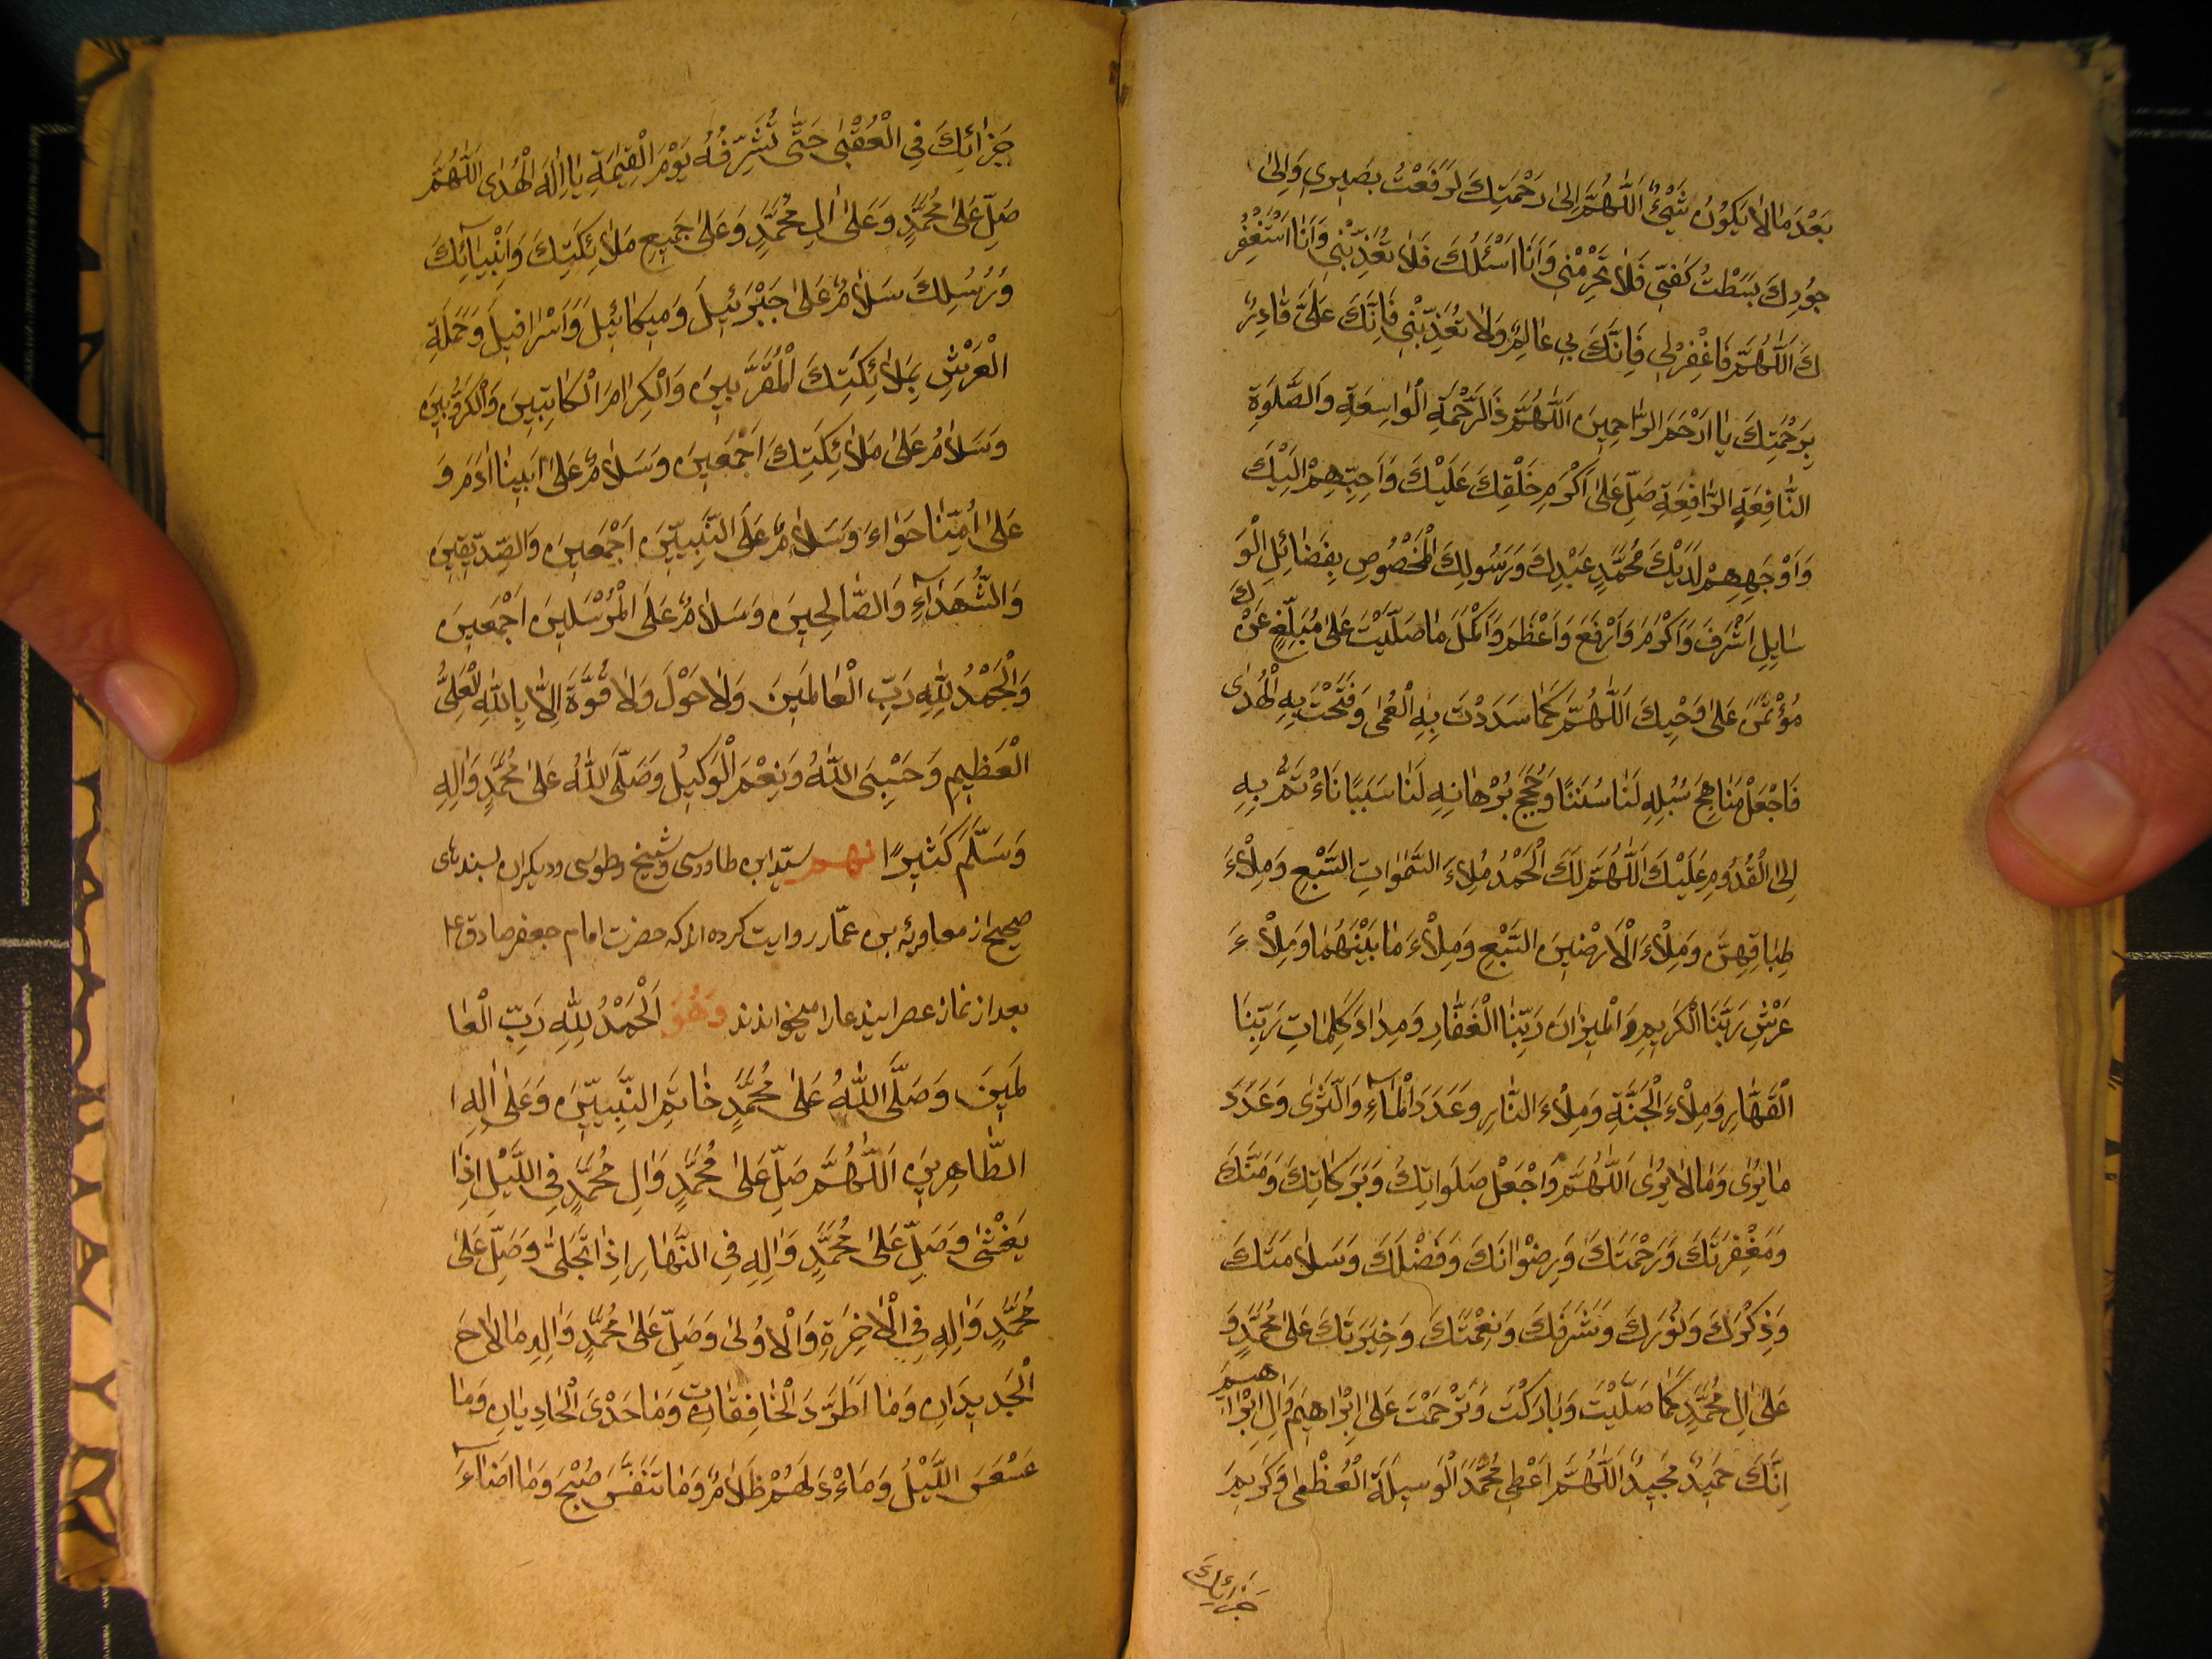 بَعْدَ مٰا لٰا يَكُونُ شَيْئٌ اَللّٰهُمَّ اِلىٰ رَحْمَتِكَ رَفَعْتُ بَصَرِي وَاِلىٰ
جُودِكَ بَسَطْتُ كَفّي فَلٰا تَحْرِمْنِي وَاَنَا اَسْئَلُكَ فَلٰا تُعَذِّبْنِي وَاَنَا اَسْتَغْفِرُ
كَ اَللّٰهُمَّ فَاغْفِرْلِي فَاِنَّكَ بِي عٰالِمٌ وَلٰا تُعَذِّبْنِي فَاِنَّكَ عَلَيَّ قٰادِرٌ
بِرَحْمَتِكَ يٰا اَرْحَمَ الرّٰاحِمِينَ اَللّٰهُمَّ ذَا الرَّحْمَةِ الْوٰاسِعَةِ وَالصَّلَوةِ
النّٰافِعَةِ الرّٰافِعَةِ صَلِّ عَلىٰ اَكْرَمِ خَلْقِكَ عَلَيْكَ وَاَحِبِّهِمْ اِلَيْكَ
وَاَوْجَهِهِمْ لَدَيْكَ مُحَمَّدٍ عَبْدِكَ وَرَسُولِكَ الْمَخْصُوصِ بِفَضٰائِلِ الْوَ
سٰايِلِ اَشْرَفَ وَاَكْرَمَ وَاَرْفَعَ وَاَعْظَمَ وَاَكْمَلَ مٰا صَلَّيْتَ عَلىٰ مُبَلِّغٍ عَنْكَ
مُؤْتَمَنٍ عَلىٰ وَحْيِكَ اَللّٰهُمَّ كَمٰا سَدَدْتَ بِهِ الْعَمىٰ وَفَتَحْتَ بِهِ الْهُدىٰ
فَاجْعَلْ مَنٰاهِجَ سُبُلِهِ لَنٰا سُنَنًا وَحُجَجَ بُرْهٰانِهِ لَنٰا سَبَبًا نَأْتَمُّ بِهِ
اِلىَ الْقُدُومِ عَلَيْكَ اَللّٰهُمَّ لَكَ الْحَمْدُ مِلْاءَ السَّمٰوٰاتِ السَّبْعِ وَمِلْاءَ
طِبٰاقِهِنَّ وَمِلْاءَ الْاَرَضِينَ السَّبْعِ وَمِلْاءَ مٰا بَيْنَهُمٰا وَمِلْاءَ
عَرْشِ رَبِّنَا الْكَرِيمِ وَ الْمِيزٰانَ رَبِّنَا الْغَفّٰارِ وَمِدٰادَ كَلِمٰاتِ رَبِّنَا
الْقَهّٰارِ وَمِلْاءَ الْجَنَّةِ وَمِلْاءَ النّٰارِ وَعَدَدَ الْمٰاءِ وَالثَّرىٰ وَعَدَدَ
مٰا يُرىٰ وَمٰا لٰا يُرىٰ اَللّٰهُمَّ وَاجْعَلْ صَلَوٰاتِكَ وَبَرَكٰاتِكَ وَمَنَّكَ
وَمَغْفِرَتَكَ وَرَحْمَتَكَ وَرِضْوٰانَكَ وَفَضْلَكَ وَسَلٰامَتَكَ
وَذِكْرَكَ وَنُورَكَ وَشَرَفَكَ وَنِعْمَتَكَ وَخِيَرَتَكَ عَلىٰ مُحَمَّدٍ وَ
عَلىٰ اٰلِ مُحَمَّدٍ كَمٰا صَلَّيْتَ وَبٰارَكْتَ وَتَرَحَّمْتَ عَلىٰ اِبْرٰاهِيمَ وَاٰلِ اِبْرٰاهِيمَ
اِنَّكَ حَمِيدٌ مَجِيدٌ اَللّٰهُمَّ اَعْطِ مُحَمَّدًا الْوَسِيلَةَ الْعُظْمىٰ وَكَرِيمَ
جَزٰائِكَ
جَزٰائِكَ فِي الْعُقْبىٰ حَتّىٰ تُشَرِّفَهُ يَوْمَ الْقِيٰمَةِ يٰا اِلٰهَ الْهُدىٰ اَللّٰهُمَّ
صَلِّ عَلىٰ مُحَمَّدٍ وَعَلىٰ اٰلِ مُحَمَّدٍ وَعَلىٰ جَمِيعِ مَلٰائِكَتِكَ وَاَنْبِيٰائِكَ
وَرُسُلِكَ سَلٰامٌ عَلىٰ جَبْرَئِيلَ وَمِيكٰائِيلَ وَاِسْرٰافِيلَ وَحَمَلَةِ
الْعَرْشِ بِمَلٰائِكَتِكَ الْمُقَرَّبِينَ وَالْكِرٰامِ الْكٰاتِبِينَ وَالْكَرُوبِينَ
وَسَلٰامٌ عَلىٰ مَلٰائِكَتِكَ اَجْمَعِينَ وَسَلٰامٌ عَلىٰ اَبِينٰا اٰدَمَ وَ
عَلىٰ اُمِّنٰا حَوّٰاءَ وَسَلٰامٌ عَلَى النَّبِيِّينَ اَجْمَعِينَ وَالصِّدِّيقِينَ
وَالشُّهَدٰاءِ وَالصّٰالِحِينَ وَسَلٰامٌ عَلَى الْمُرْسَلِينَ اَجْمَعِينَ
وَالْحَمْدُ لِلّٰهِ رَبِّ الْعٰالَمِينَ وَلٰا حَوْلَ وَلٰا قُوَّةَ اِلّٰا بِاللّٰهِ الْعَلِيِّ
الْعَظِيمِ وَحَسْبِيَ اللّٰهُ وَنِعْمَ الْوَكِيلُ وَصَلَّى اللّٰهُ عَلىٰ مُحَمَّدٍ وَاٰلِهِ
وَسَلَّمَ كَثِيرًا نهم سید ابن طاووسی و شیخ و طوسی و دیکران بسندهای
صحیح از معاویة بن عمّار روایت کرده اند که حضرت امام جعفر صادق ع
بعد از نماز عصر ایندعا را میخواندند وَهُوَ اَلْحَمْدُ لِلّٰهِ رَبِّ الْعٰا
لَمِينَ وَصَلَّى اللّٰهُ عَلىٰ مُحَمَّدٍ خٰاتَمِ النَّبِيِّينَ وَعَلىٰ اٰلِهِ ا
الطّٰاهِرِينَ اَللّٰهُمَّ صَلِّ عَلىٰ مُحَمَّدٍ وَاٰلِ مُحَمَّدٍ فِي اللَّيْلِ اِذٰا
يَغْشىٰ وَصَلِّ عَلىٰ مُحَمَّدٍ وَاٰلِهِ فِي النَّهٰارِ اِذٰا تَجَلّىٰ وَصَلِّ عَلىٰ
مُحَمَّدٍ وَاٰلِهِ فِي الْاٰخِرَةِ وَالْاُولىٰ وَصَلِّ عَلىٰ مُحَمَّدٍ وَاٰلِهِ مٰا لٰاحَ
الْجَدِيدٰانِ وَمَا اطَّرَدَ الْخٰافِقٰاتِ وَمٰا حَدَى الْحٰادِيٰانِ وَمٰا
عَسْعَسَ اللَّيْلُ وَمَا ادْلَهَمَّ ظَلٰامٌ وَمٰا تَنَفَّسَ صُبْحٌ وَمٰا اَضٰاءَ